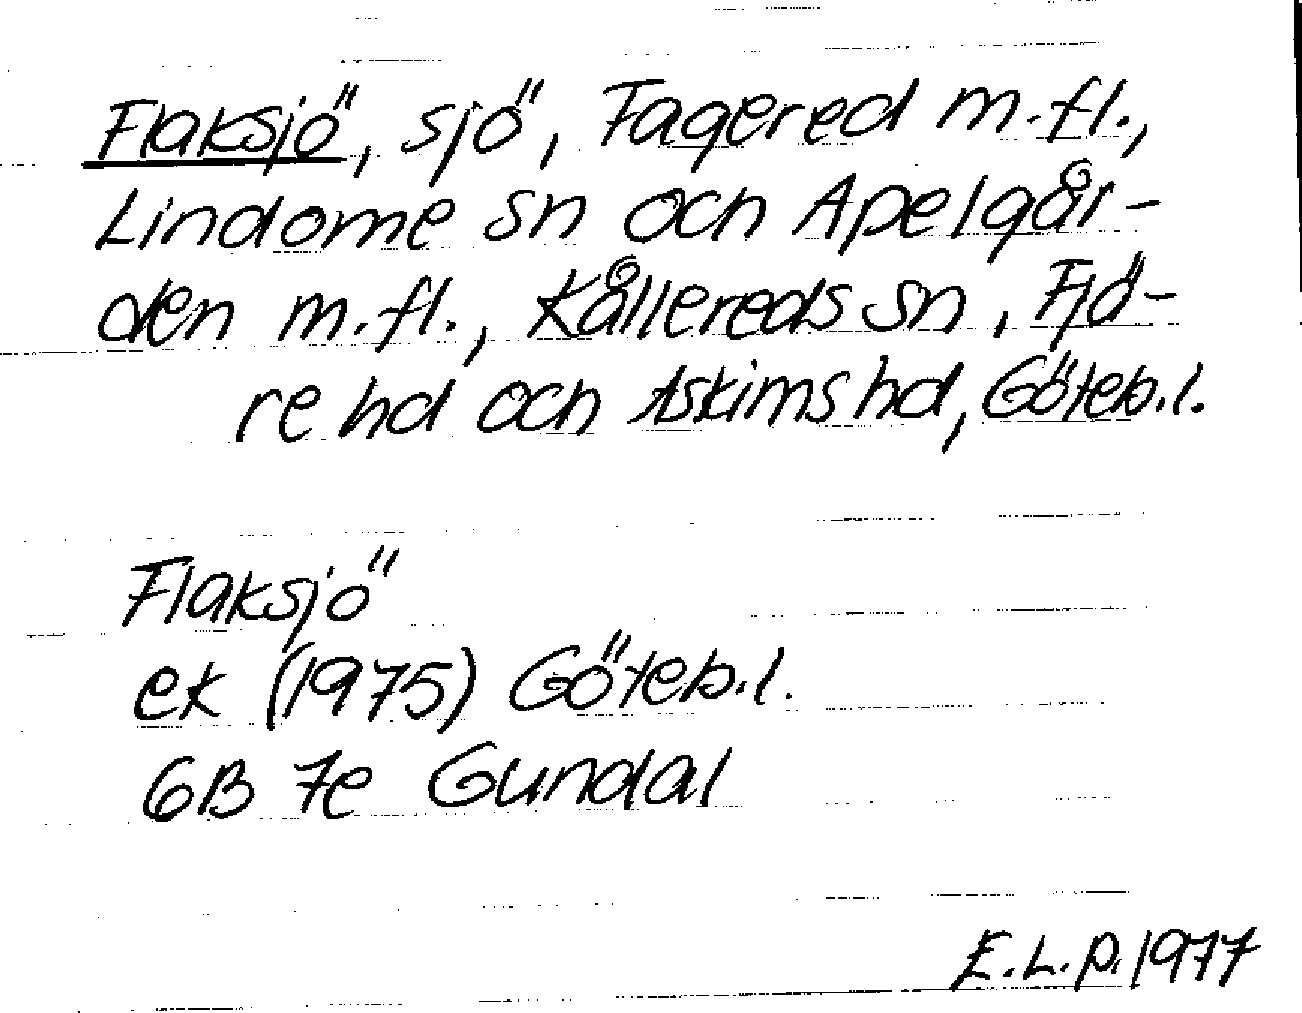 Flaksjö, sjö, Fagered m.fl.,
Lindome sn och Apelgår-
den m.fl., Kållereds sn, Fjä-
re hd och Askims hd, Göteb.l.
Flaksjö
ek (1975) Göteb.l.
6B 7e Gundal
E.L.P. 1977